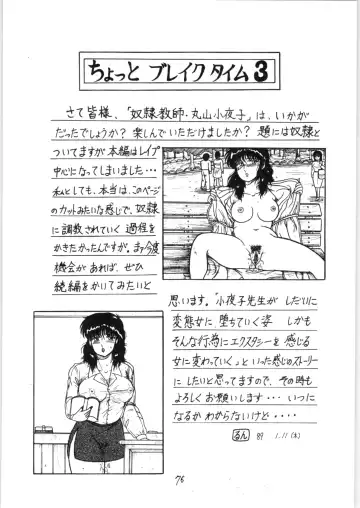 ちょっと ブレイク タイム 3
さて皆様、「奴隷教師・丸山小夜子」は、いかが
だったでしょうか？楽しんでいただけましたか？題には奴隷と
ついてますが本編はレイプ
中心になってしまいました・・・
私としても、本当は、このページ
のカットみたいな感じで、奴隷
に調教されていく過程を
かきたかったんですが。まァ今度
機会があれば、ぜひ
続編をかいてみたいと
思います。「小夜子先生が しだいに
変態女に堕ちていく姿 しかも
そんな行為にエクスタシーを感じる
女に変わっていく」といった感じのストーリー
にしたいと思ってますので、その時も
よろしくお願いします・・・いつに
なるかわからないけど・・・・
るん 89 1.11(水)
76